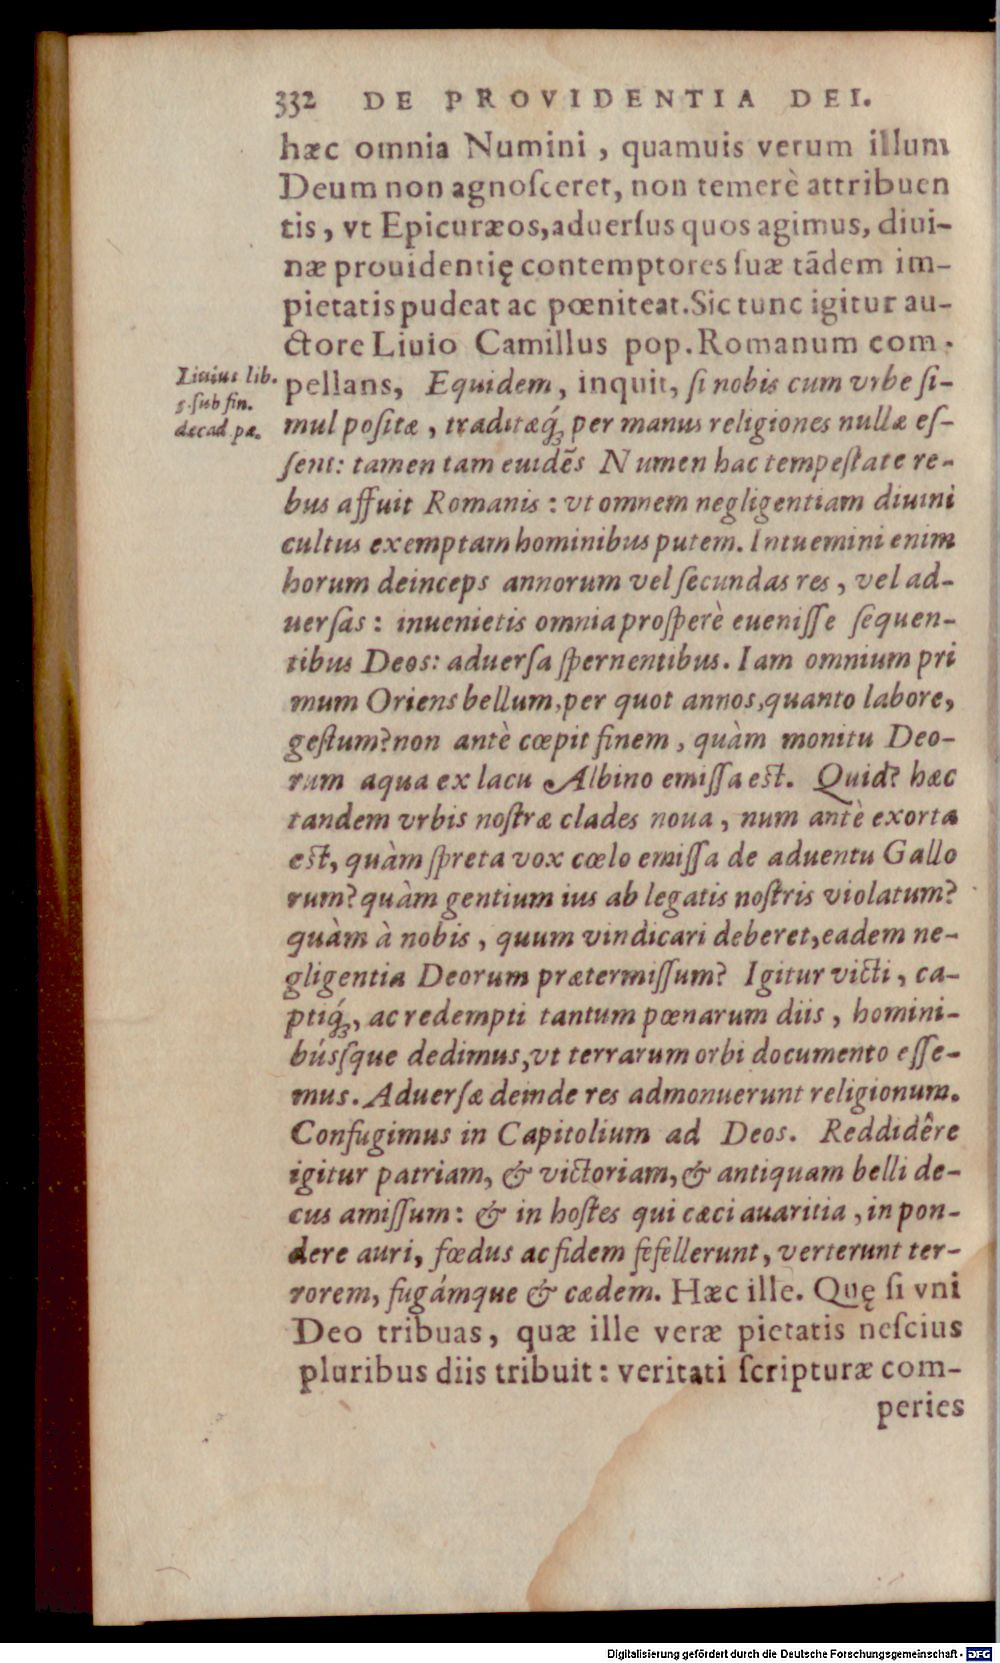 332 DE PROVIDENTIA DEI.
hæc omnia Numini, quamuis verum illum
Deum non agnosceret, non temerè attribuen
tis, vt Epicuræos, aduersus quos agimus, diui-
næ prouidentię contemptores suæ tādem im-
pietatis pudeat ac pœniteat. Sic tunc igitur au-
ctore Liuio Camillus pop. Romanum com-
Liuius lib.
5. sub fin.
decad. pæ.
pellans, Equidem, inquit, si nobis cum vrbe si-
mul positæ, traditæq́; per manus religiones nullæ es-
sent: tamen tam euidēs Numen hac tempestate re-
bus affuit Romanis: vt omnem negligentiam diuini
cultus exemptam hominibus putem. Intuemini enim
horum deinceps annorum vel secundas res, vel ad-
uersas: inuenietis omnia prosperè euenisse sequen-
tibus Deos: aduersa spernentibus. Iam omnium pri
mum Oriens bellum, per quot annos, quanto labore,
gestum? non antè cœpit finem, quàm monitu Deo-
rum aqua ex lacu Albino emissa est. Quid? hæc
tandem vrbis nostræ clades noua, num antè exorta
est, quàm spreta vox cœlo emissa de aduentu Gallo
rum? quàm gentium ius ab legatis nostris violatum?
quàm à nobis, quum vindicari deberet, eadem ne-
gligentia Deorum prætermissum? Igitur victi, ca-
ptiq́;, ac redempti tantum pœnarum diis, homini-
búsque dedimus, vt terrarum orbi documento esse-
mus. Aduersæ deinde res admonuerunt religionum.
Confugimus in Capitolium ad Deos. Reddidêre
igitur patriam, & victoriam, & antiquam belli de-
cus amissum: & in hostes qui cæci auaritia, in pon-
dere auri, fœdus ac fidem fefellerunt, verterunt ter-
rorem, fugámque & cædem. Hæc ille. Quę si vni
Deo tribuas, quæ ille veræ pietatis nescius
pluribus diis tribuit: veritati scripturæ com-
peries
Digitalisierung gefördert durch die Deutsche Forschungsgemeinschaft - DFG